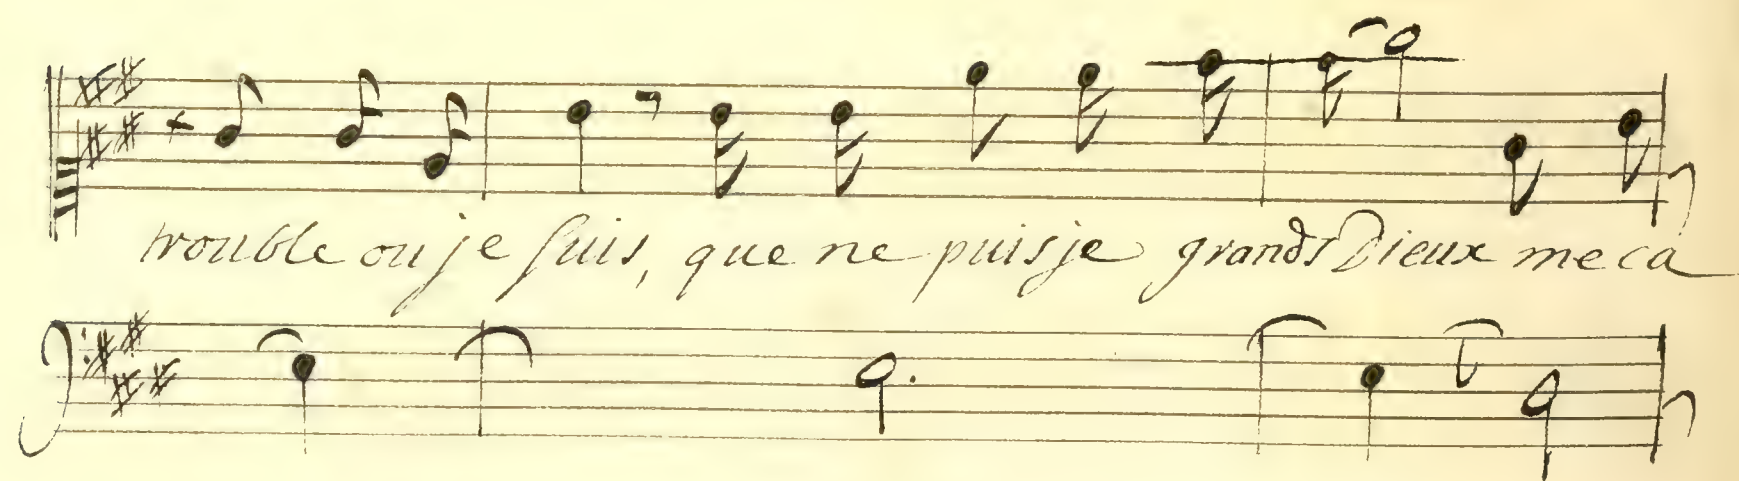 trouble ou je suis, que ne puis je grands Dieux me ca